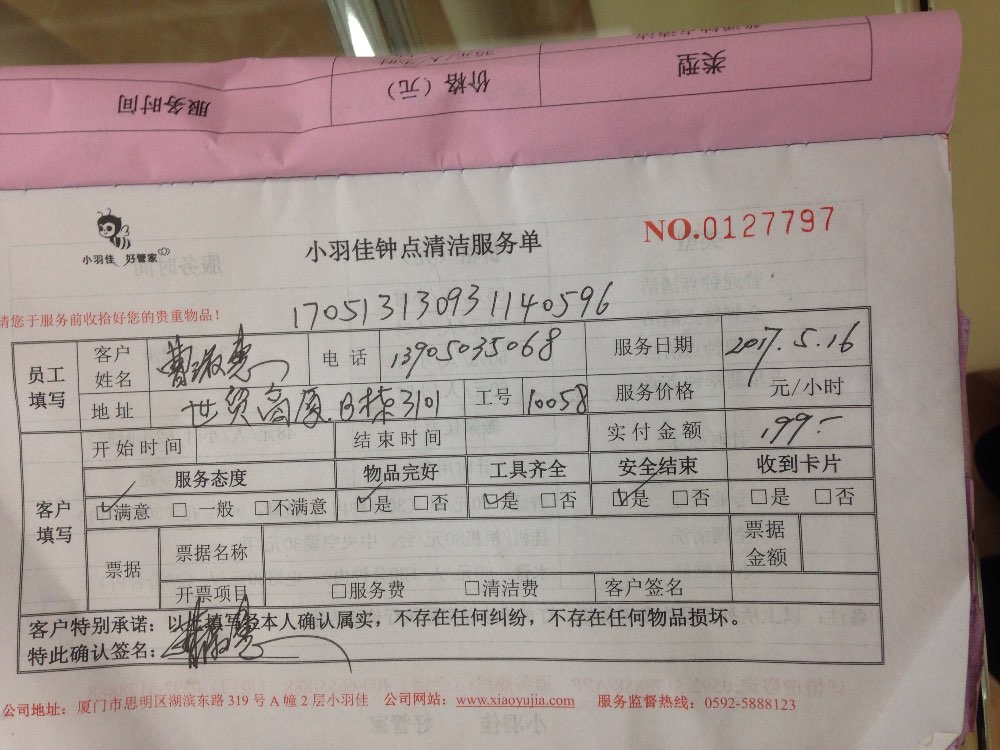 类型
价格（元）
服务时间
小羽佳 好管家
小羽佳钟点清洁服务单
NO.0127797
170513130931140596
请您于服务前收拾好您的贵重物品！
员工填写
客户姓名 曹淑惠 电话 13905035068 服务日期 2017.5.16
地址 世贸商厦B栋3101 工号 10058 服务价格 元/小时
客户填写
开始时间 结束时间 实付金额 199.-
服务态度 物品完好 工具齐全 安全结束 收到卡片
☑满意 □一般 □不满意 ☑是 □否 ☑是 □否 ☑是 □否 □是 □否
票据 票据名称 票据金额
开票项目 □服务费 □清洁费 客户签名
客户特别承诺：以上填写经本人确认属实，不存在任何纠纷，不存在任何物品损坏。
特此确认签名：
公司地址：厦门市思明区湖滨东路 319 号 A 幢 2 层小羽佳 公司网站：www.xiaoyujia.com 服务监督热线：0592-5888123